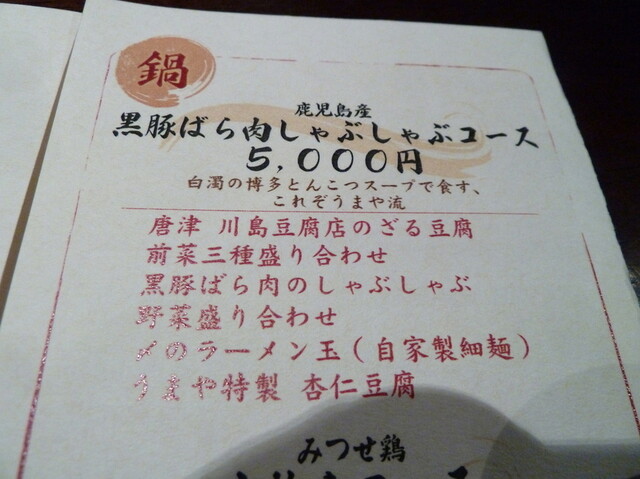 鍋
鹿児島産
黒豚ばら肉しゃぶしゃぶコース
5,000円
白濁の博多とんこつスープで食す、
これぞうまや流
唐津 川島豆腐店のざる豆腐
前菜三種盛り合わせ
黒豚ばら肉のしゃぶしゃぶ
野菜盛り合わせ
〆のラーメン玉(自家製細麺)
うまや特製 杏仁豆腐
みつせ鶏